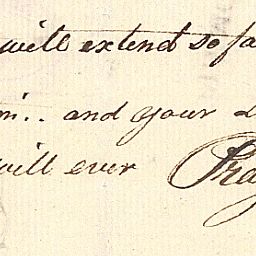 will extend so fa
m.. and your
will ever Pra